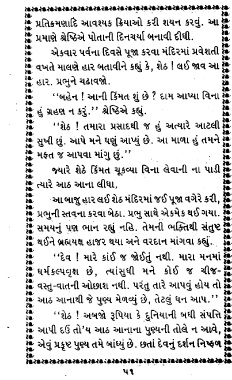 પ્રતિક્રમણાદિ આવશ્યક ક્રિયાઓ કરી શયન કરવું. આ
પ્રમાણે શ્રેષ્ઠિએ પોતાની દિનચર્યા બનાવી દીધી.
એકવાર પર્વના દિવસે પૂજા કરવા મંદિરમાં પ્રવેશતી
વખતે માલણે હાર બતાવીને કહ્યું કે, શેઠ ! લઈ જાવ આ
હાર. પ્રભુને ચઢાવજો.
“બહેન ! આની કિંમત શું છે ? દામ આપ્યા વિના
હું ગ્રહણ ન કરું.” શ્રેષ્ઠિએ કહ્યું.
“શેઠ ! તમારા પ્રસાદથી જ હું અત્યારે આટલી
સુખી છું. આપે મને ઘણું આપ્યું છે. આ માળા હું તમને
મફત જ આપવા માગુ છું.”
જ્યારે શેઠે કિંમત ચૂકવ્યા વિના લેવાની ના પાડી
ત્યારે આઠ આના લીધા,
આ બાજુ હાર લઈ શેઠ મંદિરમાં જઈ પૂજા વગેરે કરી,
પ્રભુની સ્તવના કરવા બેઠા. પ્રભુ સાથે એકમેક થઈ ગયા.
સમયનું પણ ભાન રહ્યું નહિ. તેમની ભક્તિથી સંતુષ્ટ
થઈને બ્રહ્મયક્ષ હાજર થયા અને વરદાન માંગવા કહ્યું.
“દેવ ! મારે કાંઈ જ જોઈતું નથી. મારા મનમાં
ધર્મકલ્પવૃક્ષ છે, ત્યાંસુધી મને કોઈ જ ચીજ-
વસ્તુ-વાતની ઓછાશ નથી. પરંતુ તારે આપવું હોય તો
આઠ આનાથી જે પુણ્ય મેળવ્યું છે, તેટલું ધન આપ.”
“શેઠ ! અબજો રૂપિયા કે દુનિયાની બધી સંપત્તિ
આપી દઉં તો'ય આઠ આનાના પુણ્યની તોલે ન આવે,
એવું પ્રકૃષ્ટ પુણ્ય તમે બાંધ્યું છે. છતાં દેવનું દર્શન નિષ્ફળ
૫૧